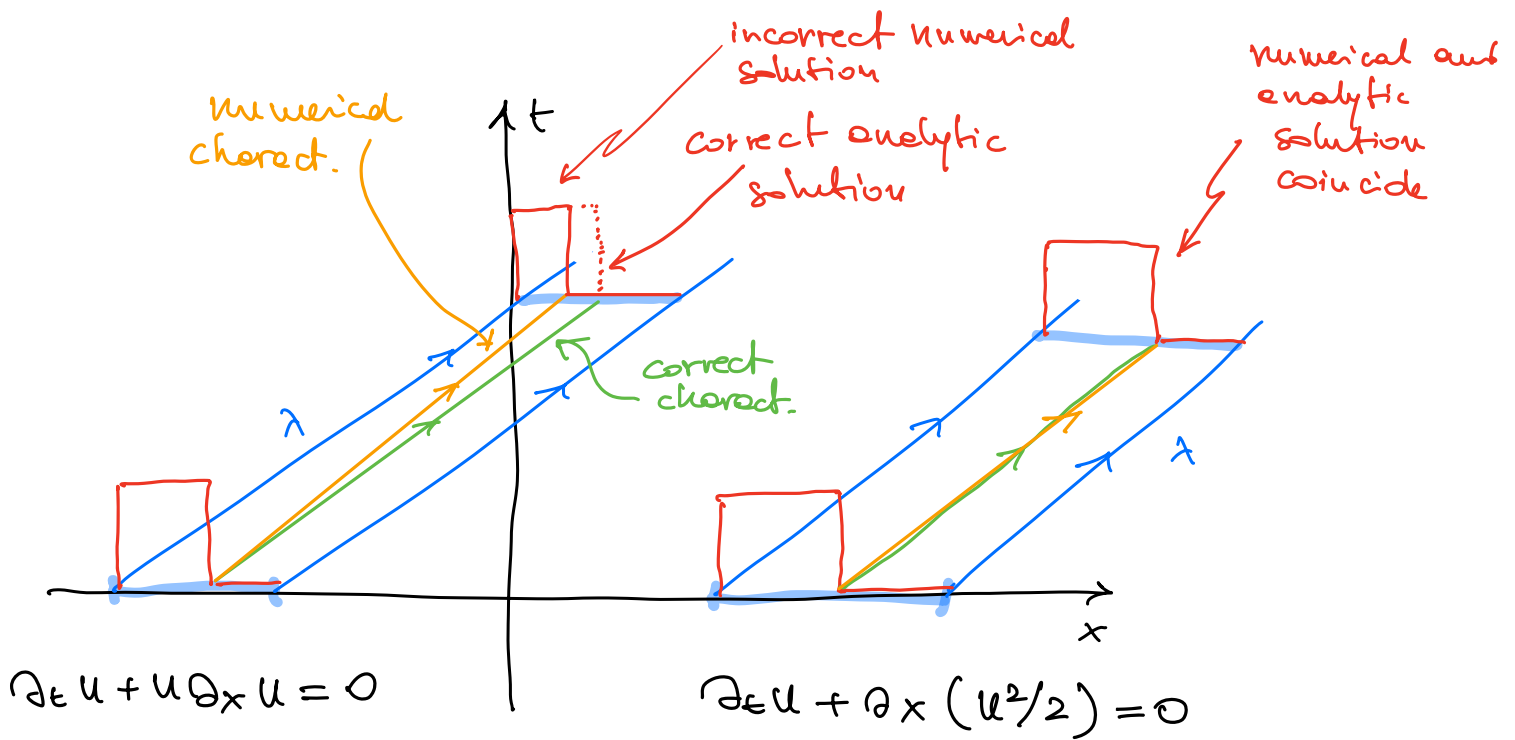 incorrect numerical
solution
numerical and
analytic
solution
coincide
numerical
charact.
t
correct analytic
solution
correct
charact.
λ
λ
x
∂ₜu + u∂ₓu = 0
∂ₜu + ∂ₓ(u²/2) = 0